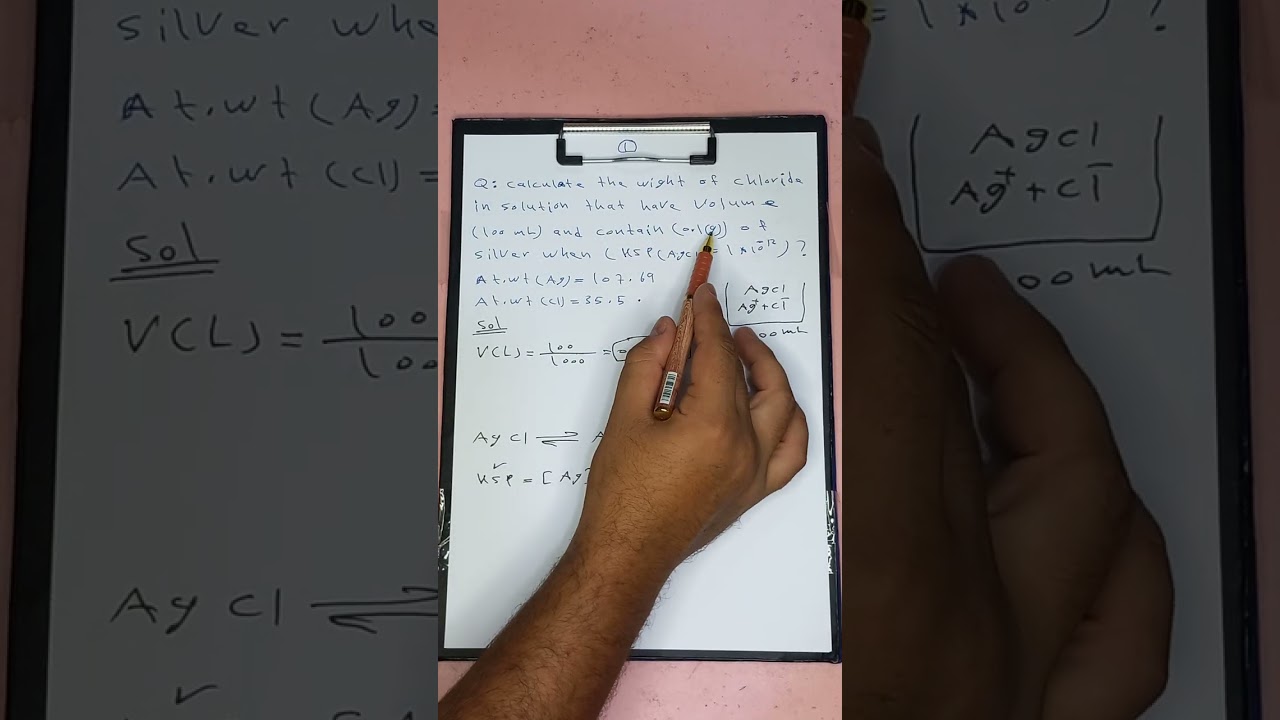 ①
Q: calculate the wight of chloride
in solution that have volume
(100 mL) and contain (0.1(g)) of
silver when (KSP(AgCl) = 1*10^-12) ?
At.wt(Ag) = 107.69
At.wt(Cl) = 35.5 .
AgCl
Ag⁺ + Cl⁻
00 mL
Sol
V(L) = 100/1000 =
AgCl ⇌ A
✓
KSP = [Ag]